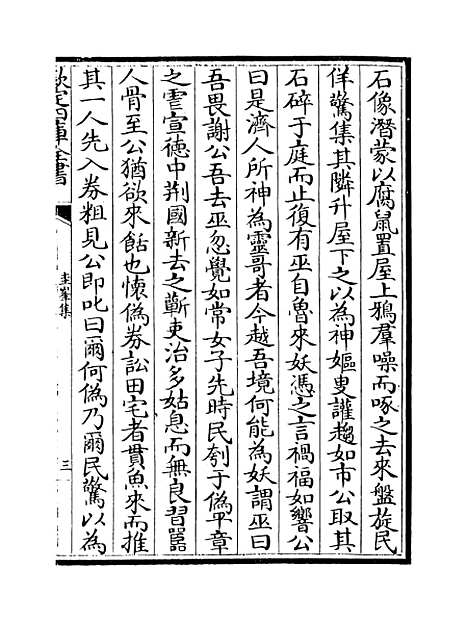 石像潛蒙以腐鼠置屋上鴉羣噪而啄之去來盤旋民
佯驚集其隣升屋下之以為神嫗叟讙趨如市公取其
石碎于庭而止復有巫自魯來妖憑之言禍福如響公
曰是濟人所神為靈哥者今越吾境何能為妖謂巫曰
吾畏謝公吾去巫忽覺如常女子先時民刳于偽平章
之䨟宣德中荆國新去之蘄吏治多姑息而無良習嚚
人骨至公猶欲來餂也懐偽劵訟田宅者貫魚來而推
其一人先入劵粗見公即叱曰爾何偽乃爾民驚以為
欽定四庫全書
圭峯集
三